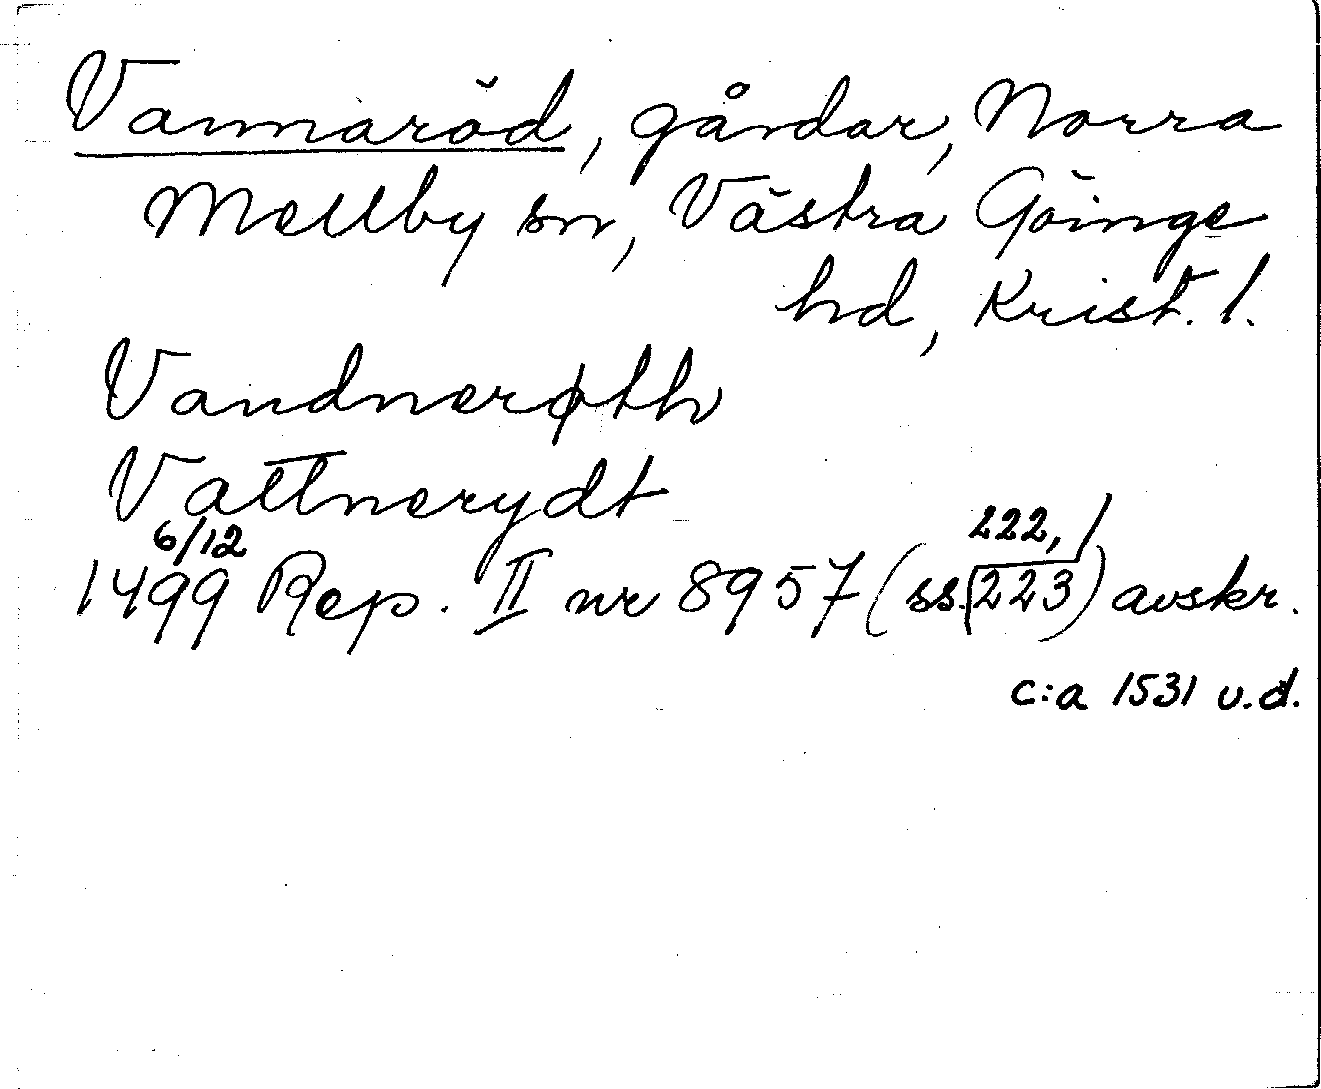 Vannaröd, gårdar, Norra
Mellby sn, Västra Göinge
hd, Krist. l.
Vandnerøth
Vattnerydt
6/12 222,
1499 Rep. II nr 8957 (ss. 223) avskr.
c:a 1531 u.d.